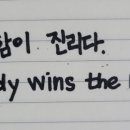 함이 진리다.
dy wins the